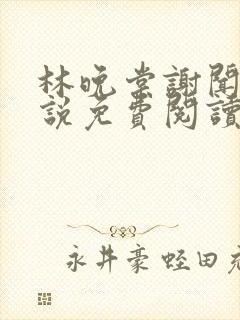 林晚棠謝聞
說免費閱讀
永井豪蛭田充